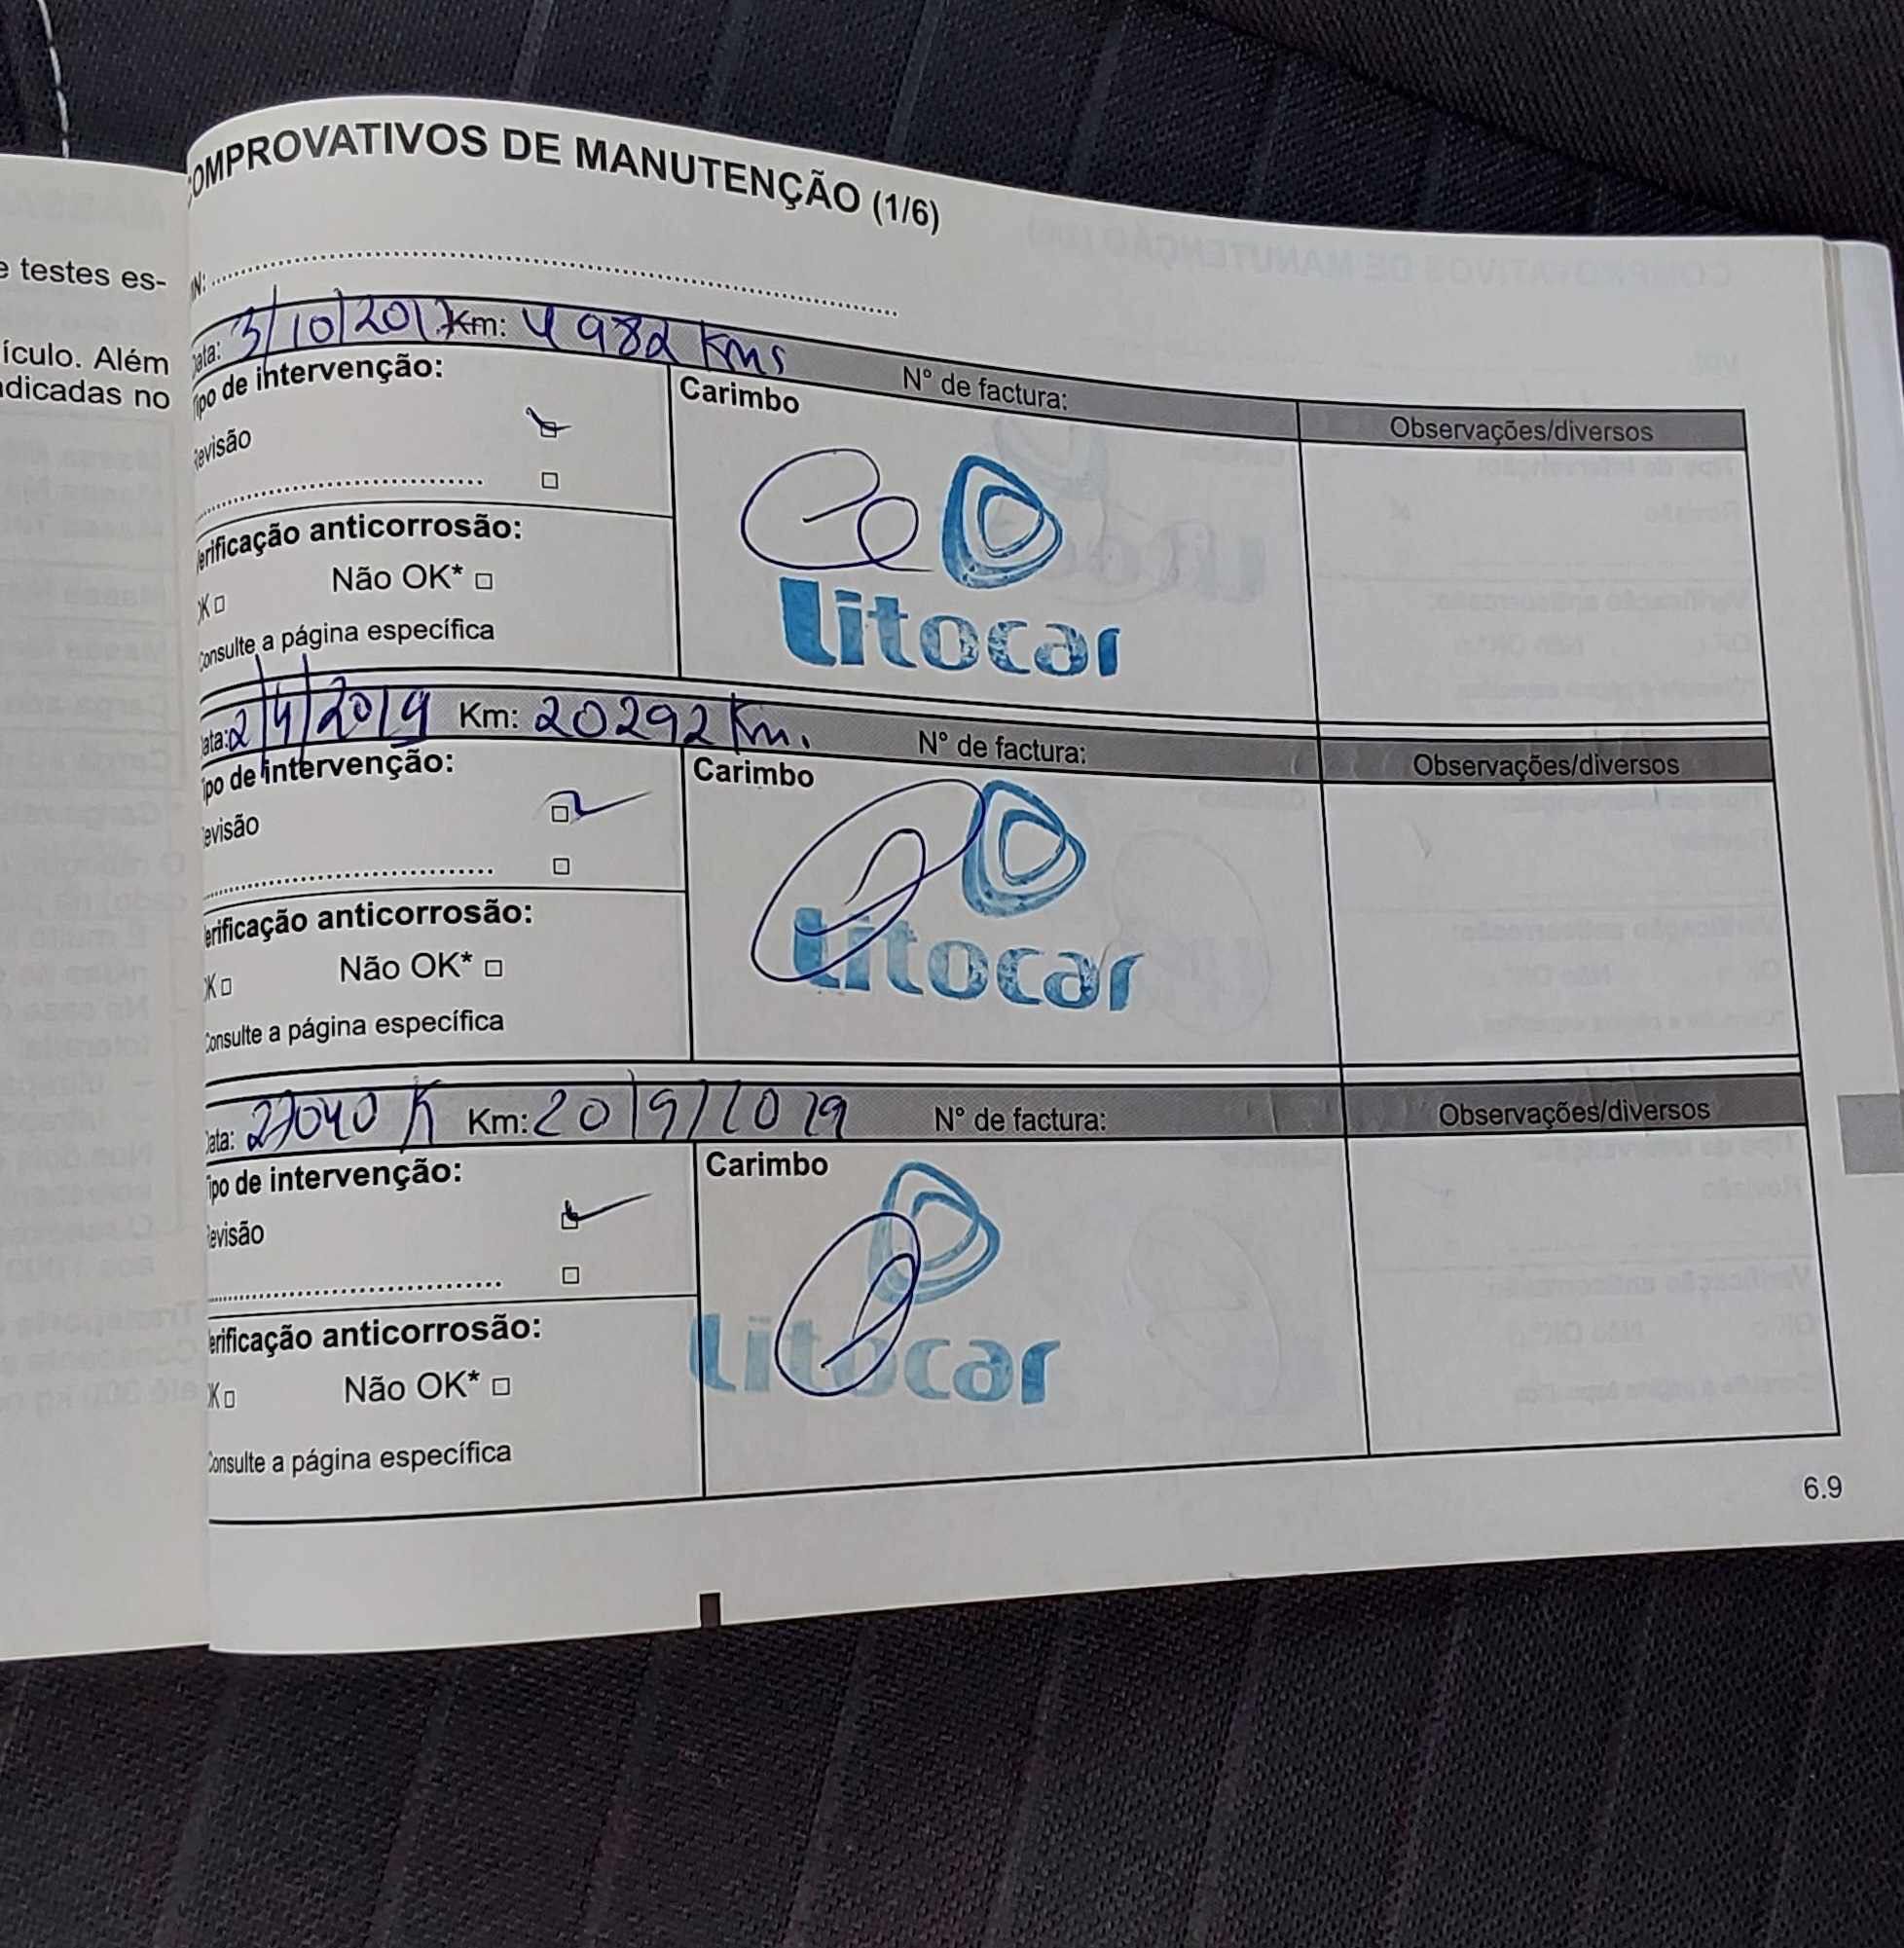 e testes es-
ículo. Além
dicadas no
OMPROVATIVOS DE MANUTENÇÃO (1/6)
IN:
Data: 3/10/2017 Km: 4982 Kms Nº de factura: Observações/diversos
Tipo de intervenção: Carimbo
Revisão
Verificação anticorrosão:
OK Não OK*
Consulte a página específica
litocar
Data: 2/4/2019 Km: 20292 Km. Nº de factura: Observações/diversos
Tipo de intervenção: Carimbo
Revisão
Verificação anticorrosão:
OK Não OK*
Consulte a página específica
litocar
Data: 27040 K Km: 20/9/2019 Nº de factura: Observações/diversos
Tipo de intervenção: Carimbo
Revisão
Verificação anticorrosão:
OK Não OK*
Consulte a página específica
litocar
6.9